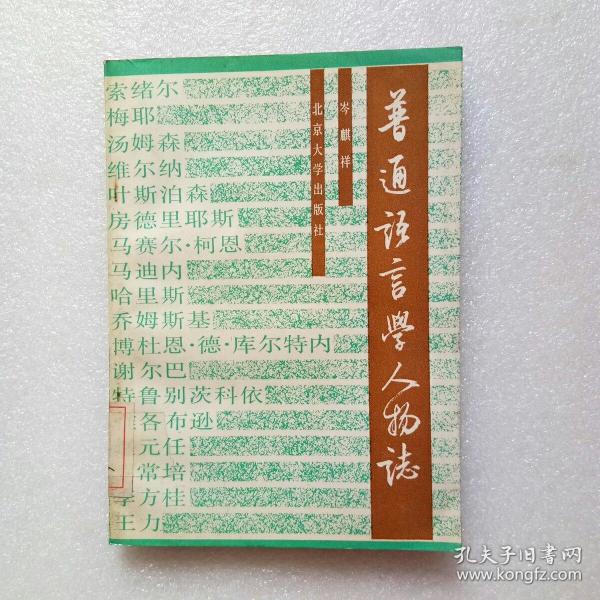 普通語言學人物誌
岑麒祥
北京大学出版社
索绪尔
梅耶
汤姆森
维尔纳
叶斯泊森
房德里耶斯
马赛尔·柯恩
马迪内
哈里斯
乔姆斯基
博杜恩·德·库尔特内
谢尔巴
特鲁别茨科依
各布逊
元任
常培
李方桂
王力
孔夫子旧书网
www.kongfz.com